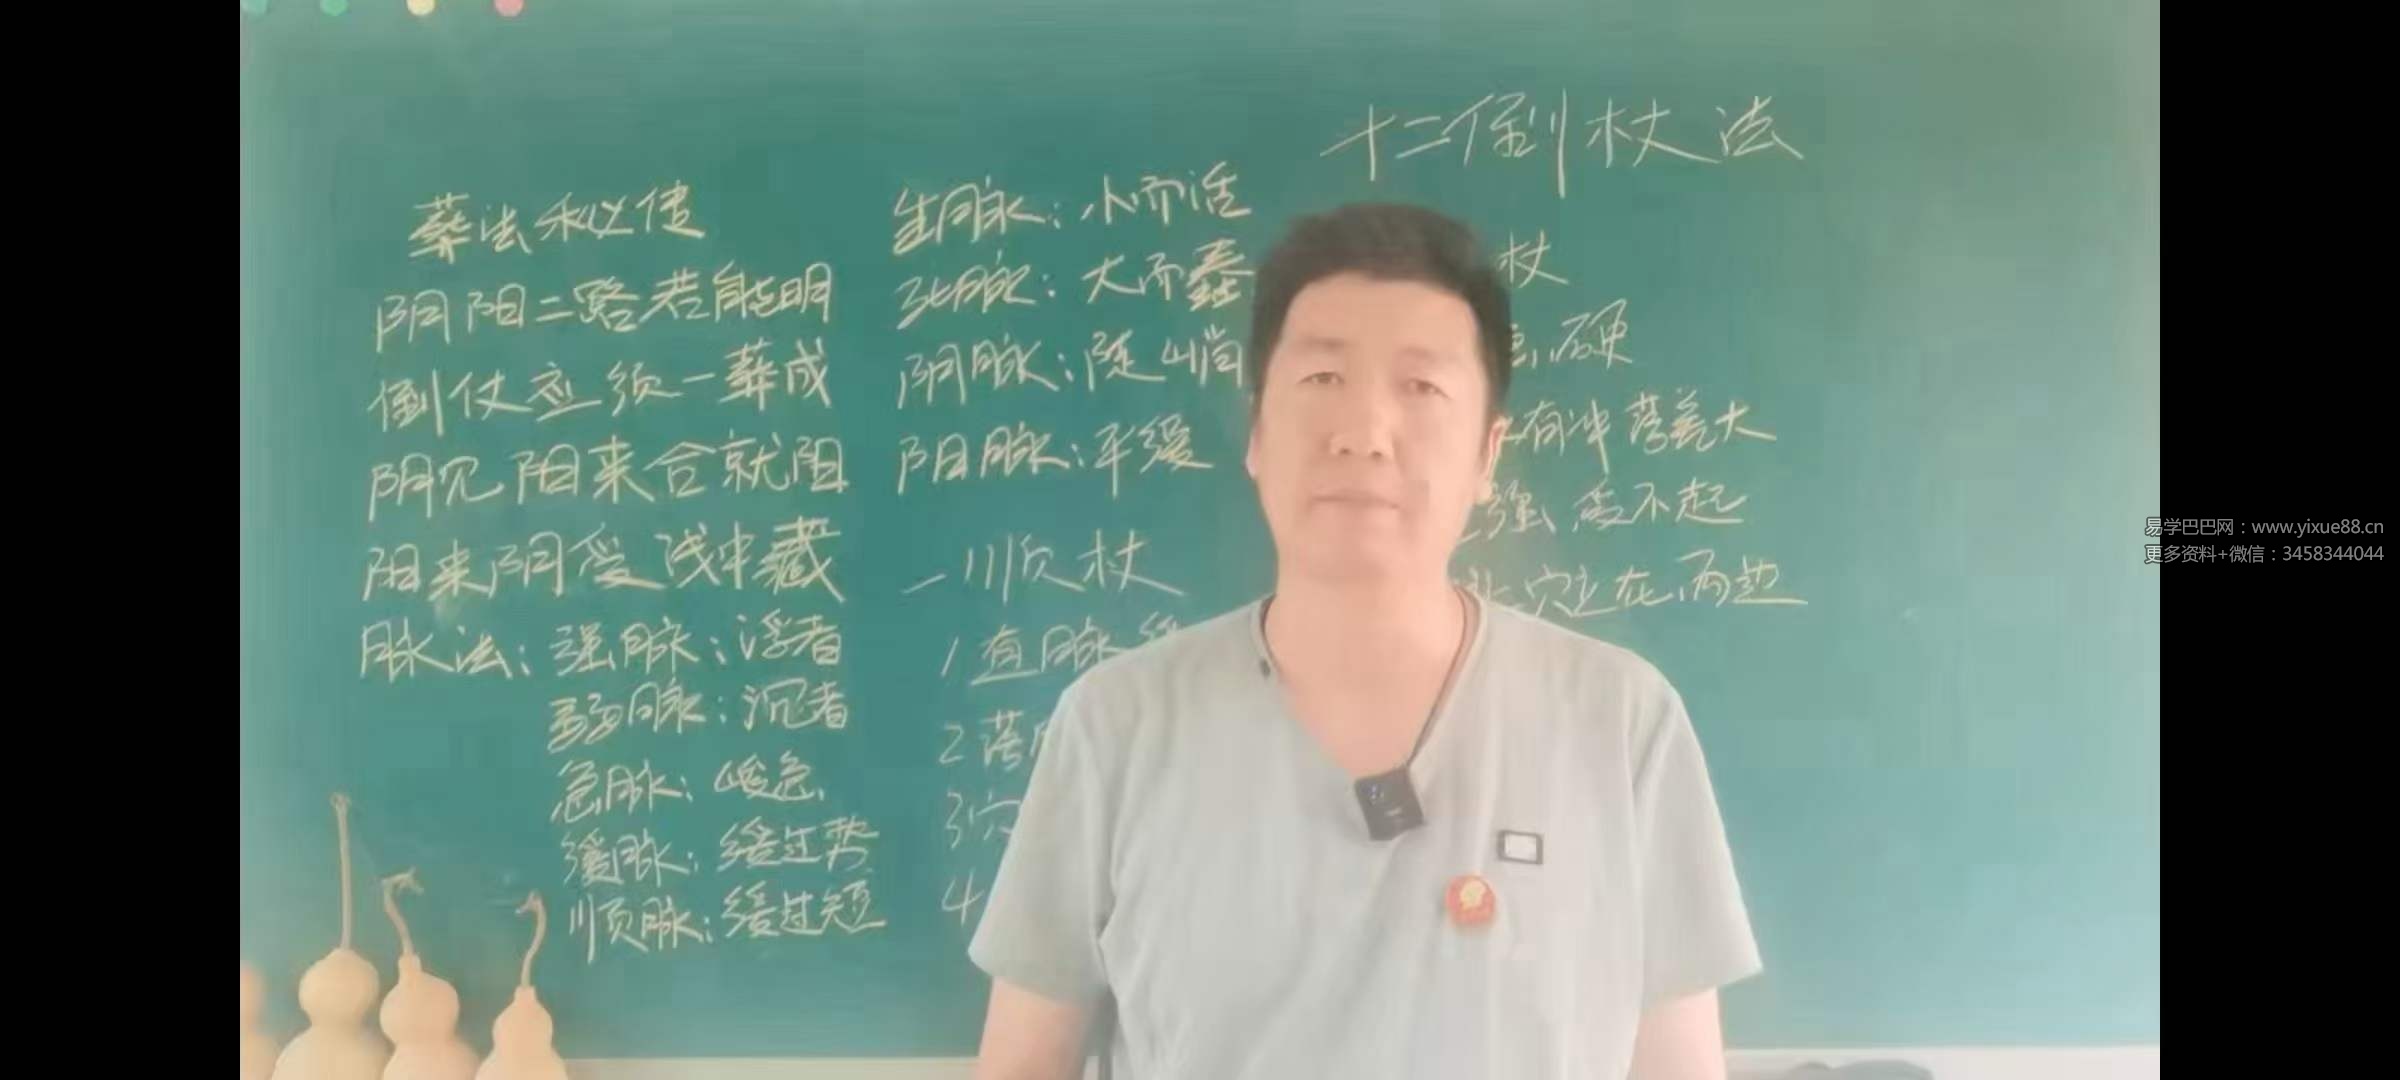 十二倒杖法
葬法秘传
阴阳二路若能明
倒仗应须一葬成
阴见阳来合就阳
阳来阴受浅中藏
脉法：强脉：浮者
弱脉：沉者
急脉：峻急
缓脉：缓过势
顺脉：缓过短
生脉：小而活
死脉：大而蠢
阴脉：陡峭
阳脉：平缓
一顺杖
1直脉
2落
3穴
4
杖
硬
有冲
大
强 受不起
穴立在两边
易学巴巴网：www.yixue88.cn
更多资料+微信：3458344044